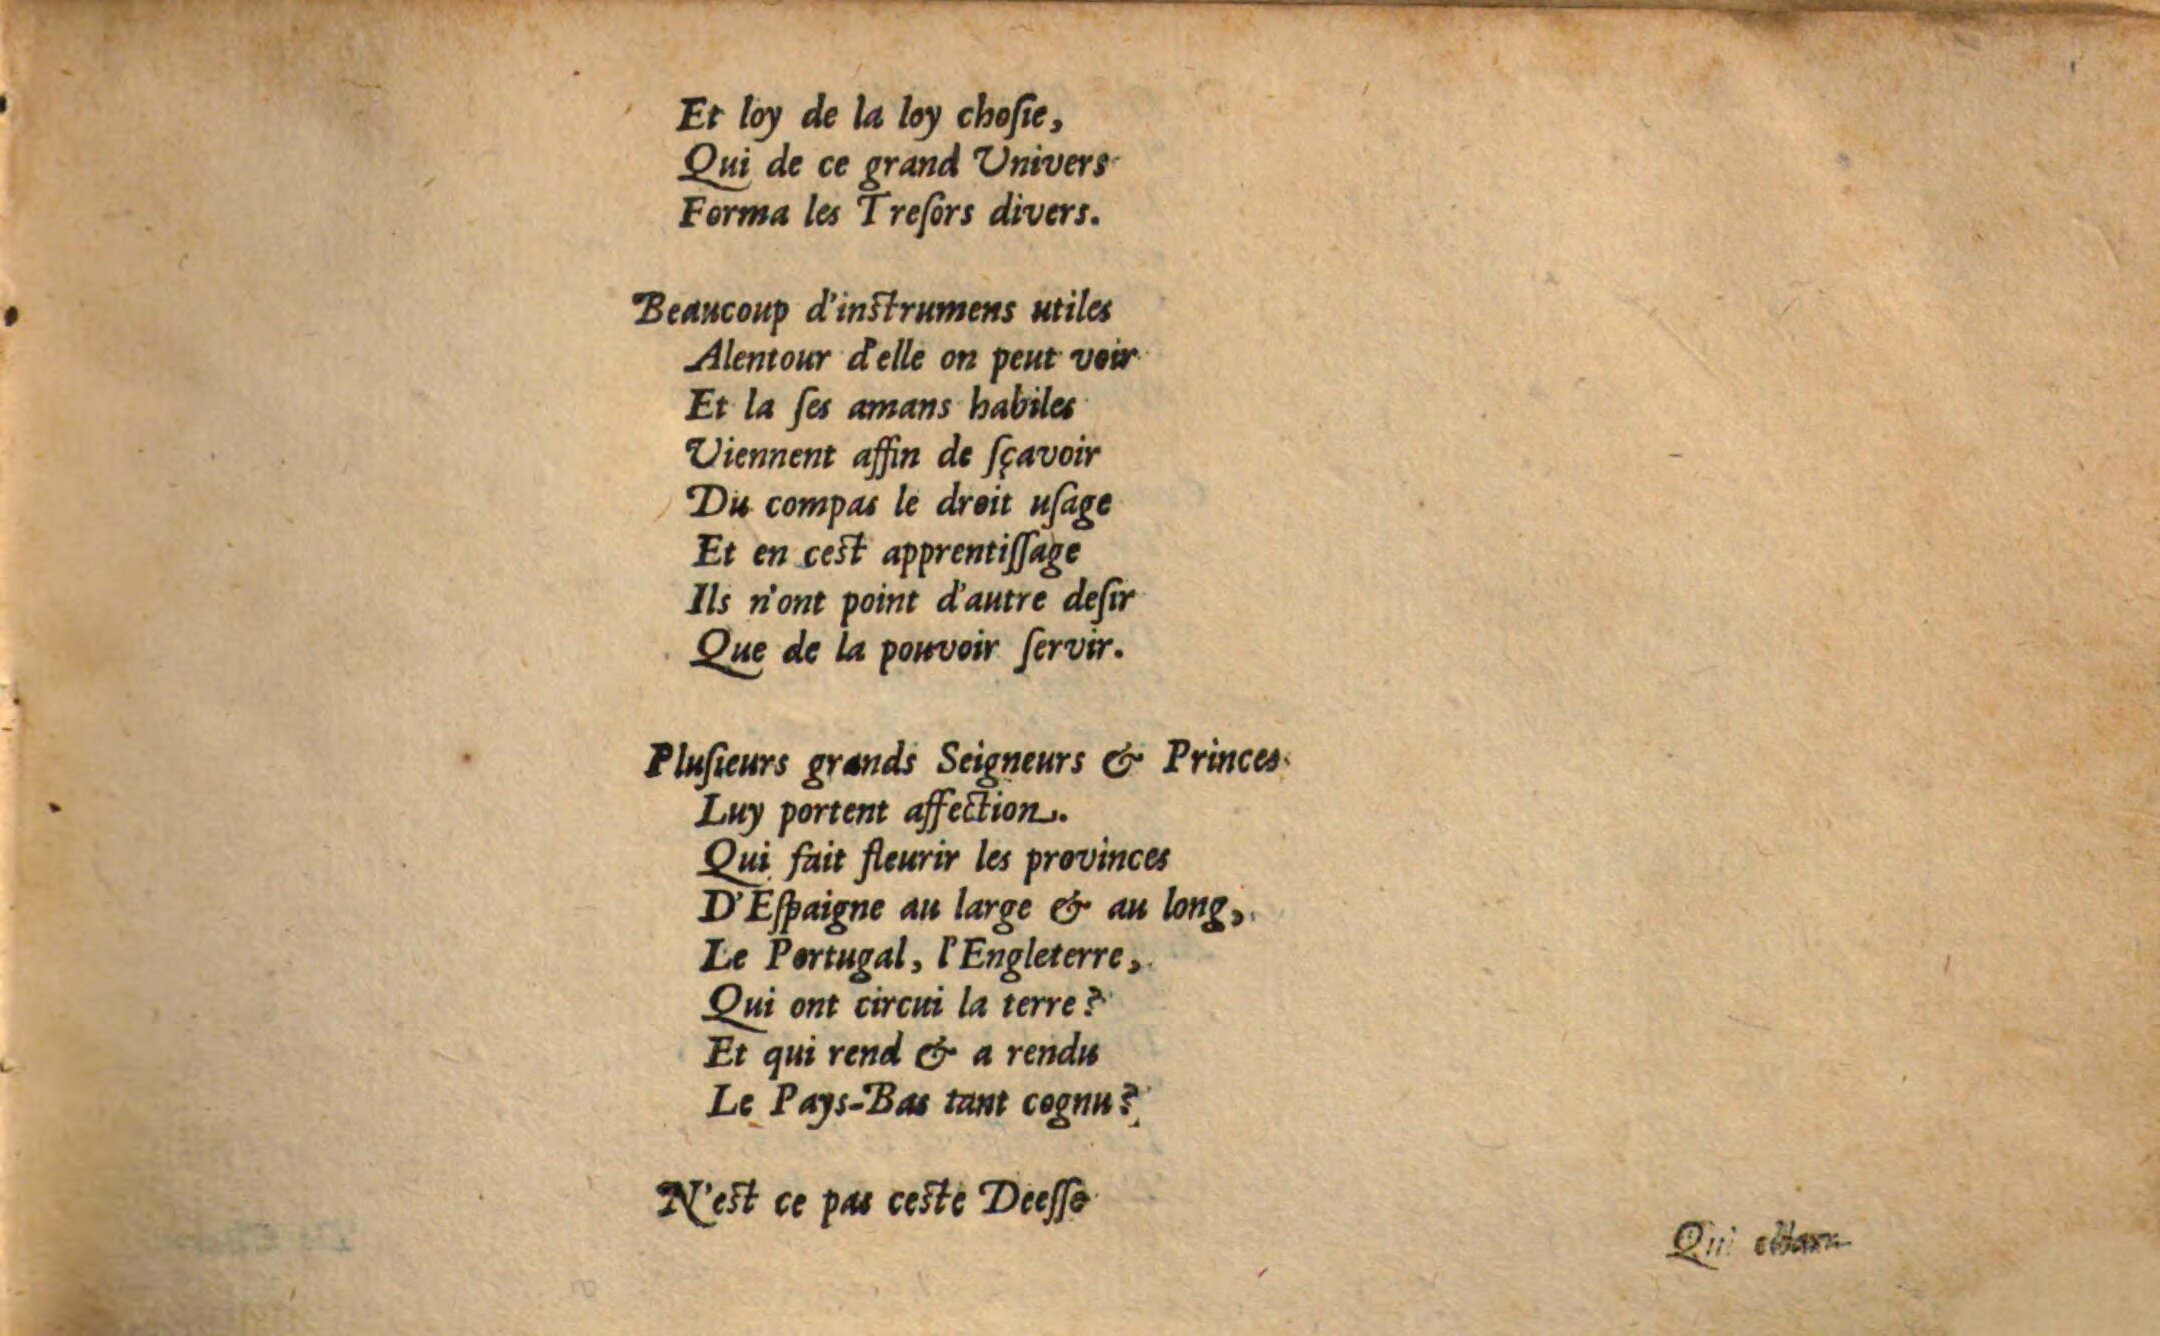 Et loy de la loy choſie,
Qui de ce grand Univers
Forma les Treſors divers.
Beaucoup d'inſtrumens utiles
Alentour d'elle on peut voir
Et la ſes amans habiles
Viennent affin de ſçavoir
Du compas le droit uſage
Et en ceſt apprentiſſage
Ils n'ont point d'autre deſir
Que de la pouvoir ſervir.
Pluſieurs grands Seigneurs & Princes
Luy portent affection.
Qui fait fleurir les provinces
D'Eſpaigne au large & au long,
Le Portugal, l'Engleterre,
Qui ont circui la terre?
Et qui rend & a rendu
Le Pays-Bas tant cognu?
N'eſt ce pas ceſte Deeſſe
Qui